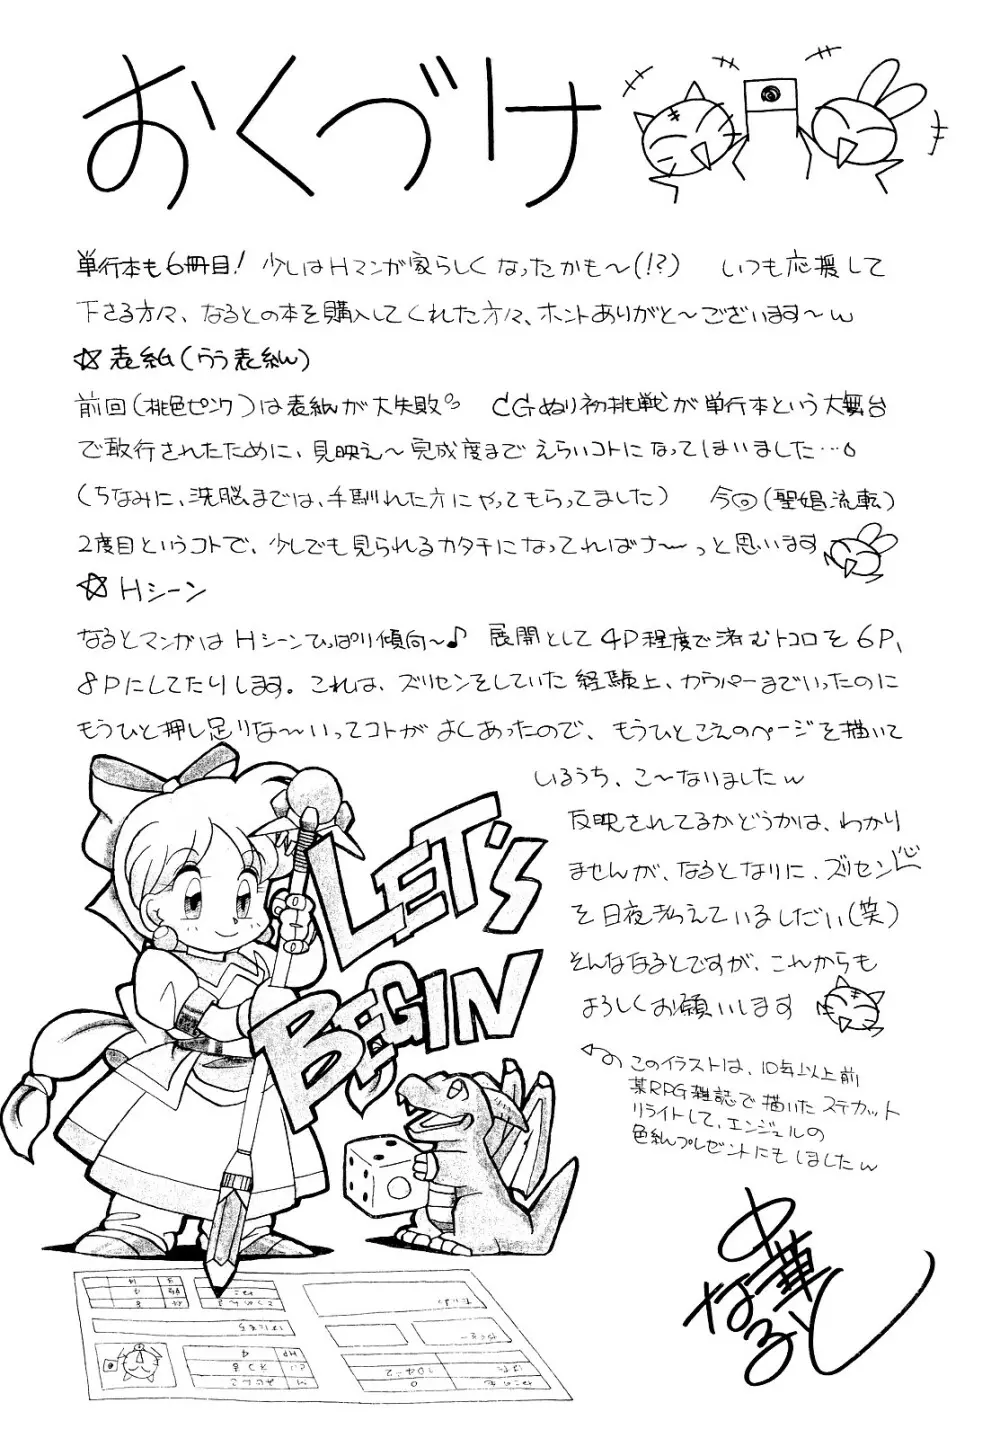 おくづけ
単行本も6冊目! 少しはHマンガ家らしくなったかも〜(!?) いつも応援して
下さる方々、なるとの本を購入してくれた方々、ホントありがと〜ございます〜w
☆表紙(うら表紙)
前回(桃色ピンク)は表紙が大失敗 CGぬり初挑戦が単行本という大舞台
で敢行されたために、見映え〜完成度までえらいコトになってしまいました…。
(ちなみに、洗脳までは、手馴れた方にやってもらってました) 今回(聖娼流転)
2度目というコトで、少しでも見られるカタチになってればナ〜っと思います
☆Hシーン
なるとマンガはHシーンひっぱり傾向〜♪ 展開として4P程度で済むトコロを6P、
8Pにしてたりします。これは、ズリセンをしていた経験上、カウパーまでいったのに
もうひと押し足りな〜いってコトがよくあったので、もうひとこえのページを描いて
いるうち、こ〜なりましたw
反映されてるかどうかは、わかり
ませんが、なるとなりに、ズリセン
を日夜考えているしだい(笑)
そんななるとですが、これからも
よろしくお願いします
LET'S
BEGIN
←の このイラストは、10年以上前
某RPG雑誌で描いたステカット
リライトして、エンジェルの
色紙プレゼントにもしましたw
中華
なると